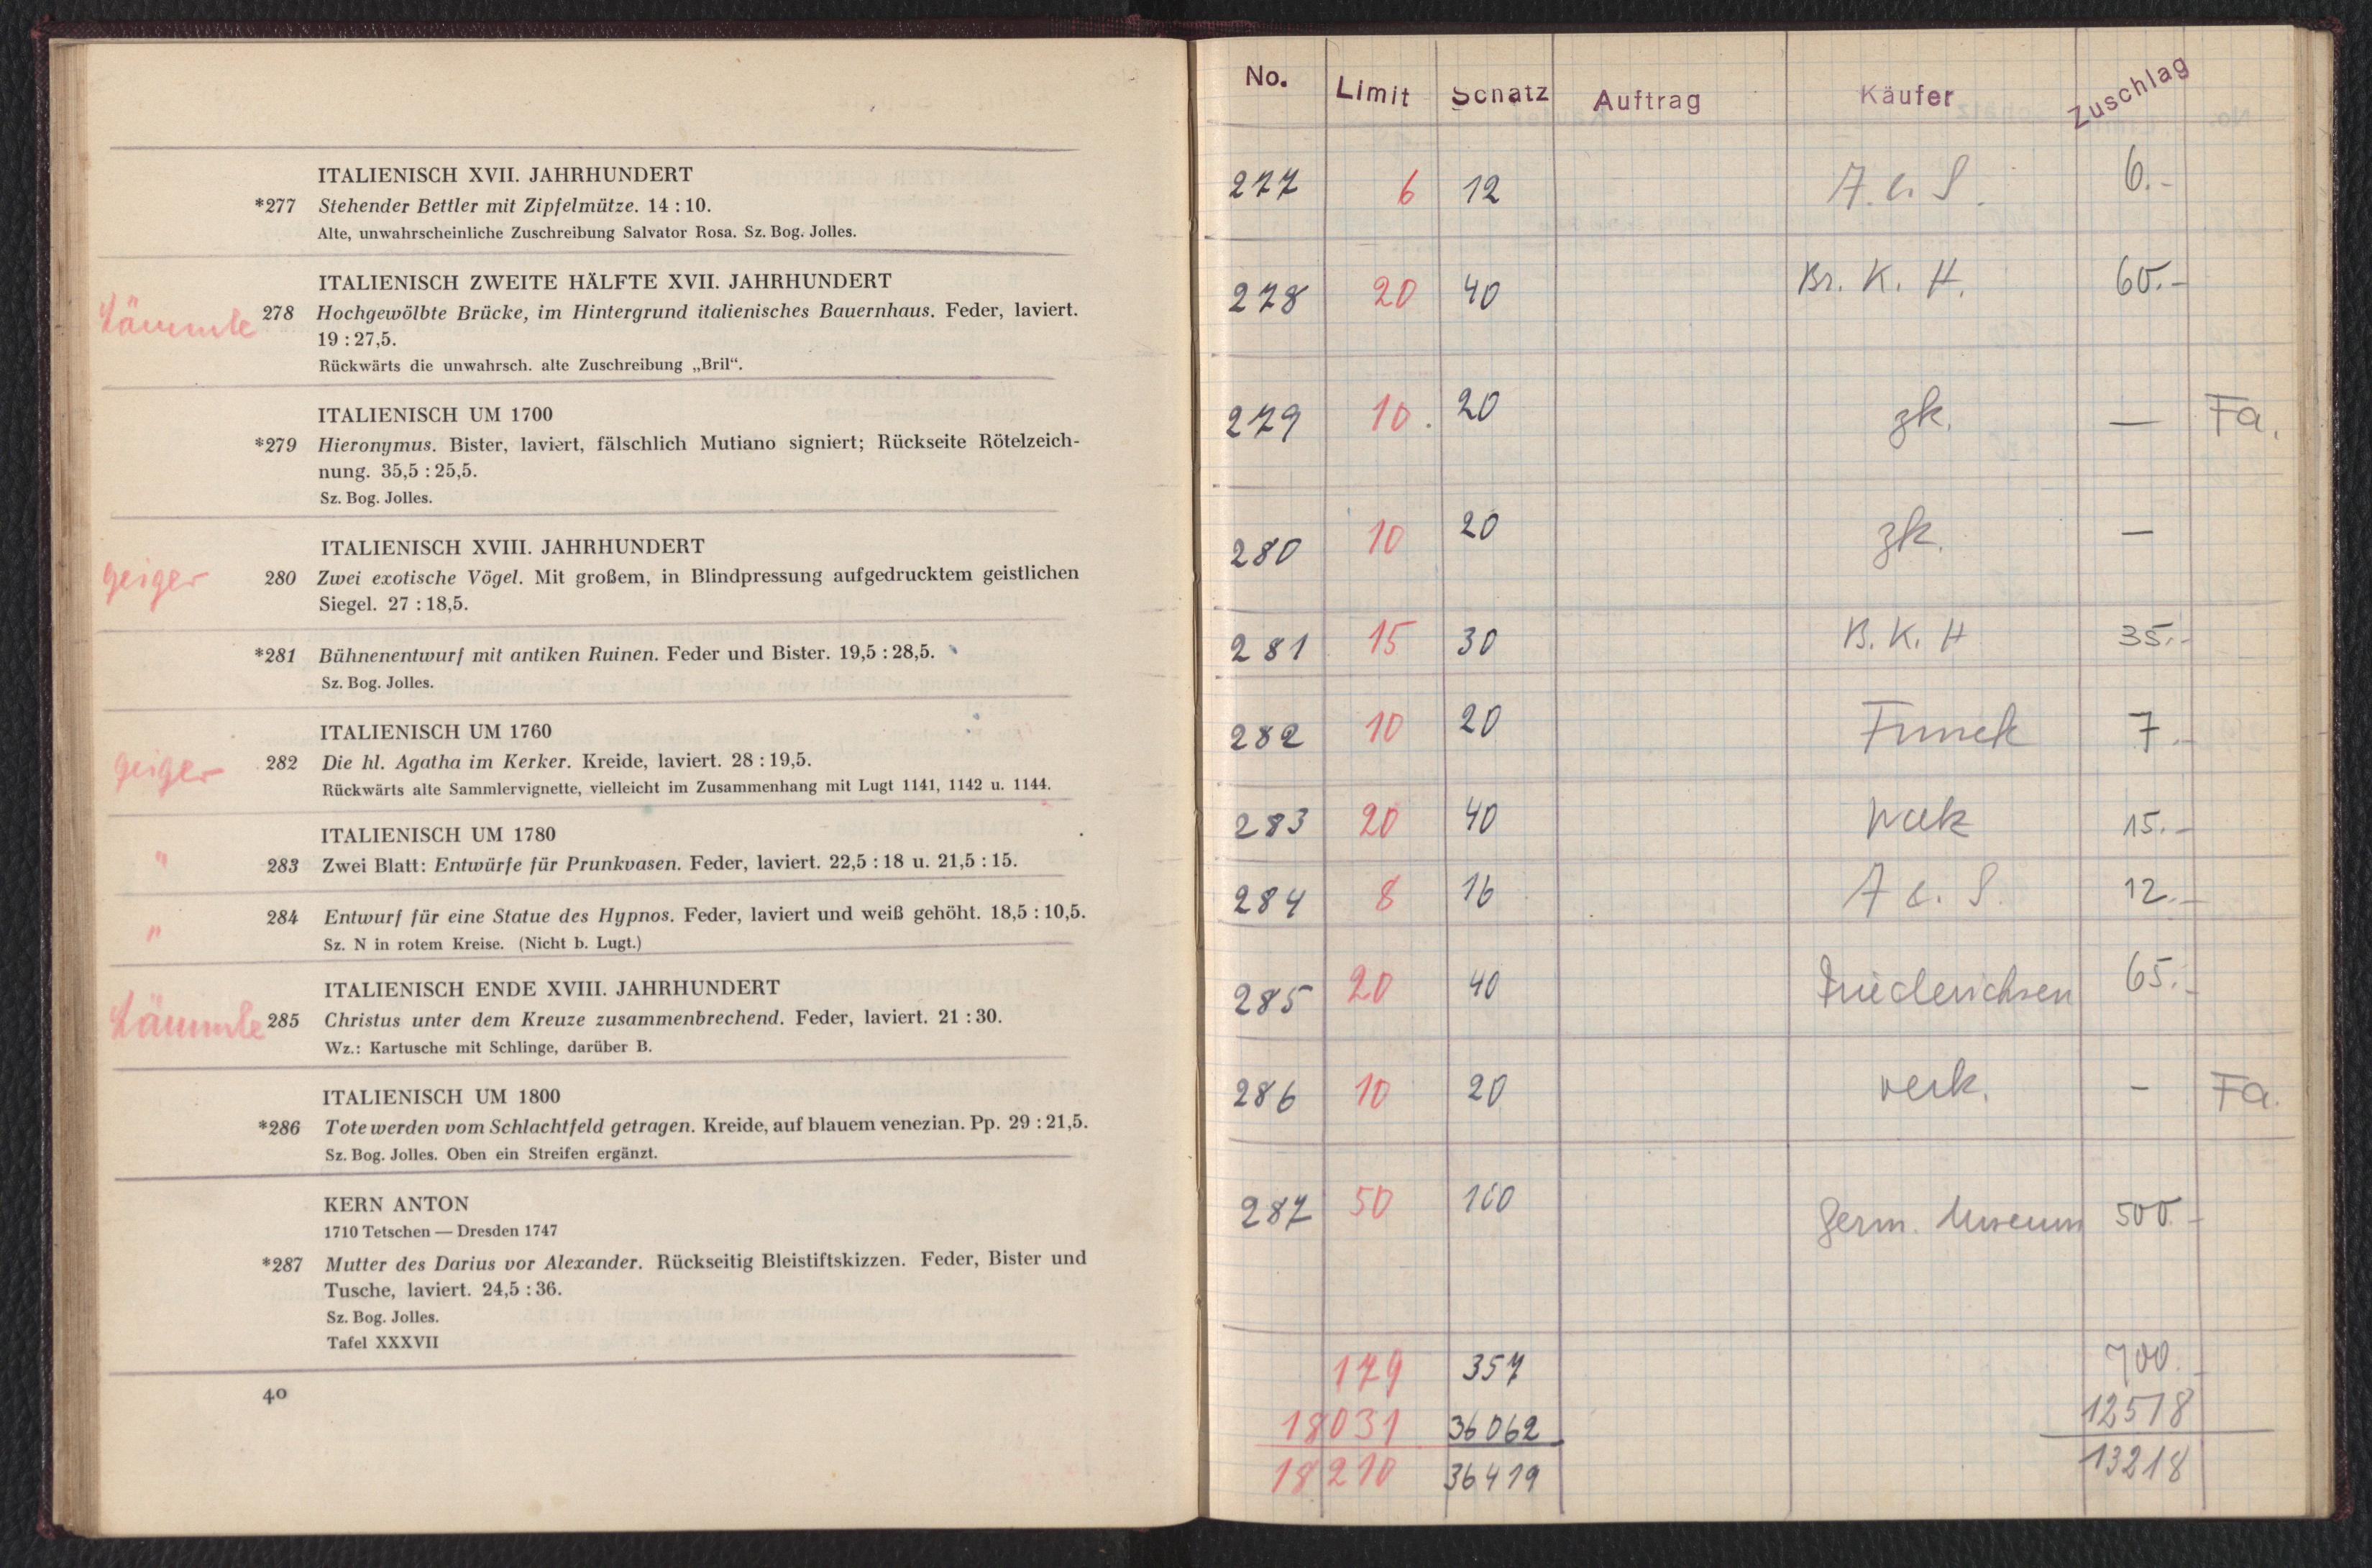 ITALIENISCH XVII. JAHRHUNDERT
*277 Stehender Bettler mit Zipfelmütze. 14 : 10.
Alte, unwahrscheinliche Zuschreibung Salvator Rosa. Sz. Bog. Jolles.
ITALIENISCH ZWEITE HÄLFTE XVII. JAHRHUNDERT
Lämmle 278 Hochgewölbte Brücke, im Hintergrund italienisches Bauernhaus. Feder, laviert.
19 : 27,5.
Rückwärts die unwahrsch. alte Zuschreibung „Bril“.
ITALIENISCH UM 1700
*279 Hieronymus. Bister, laviert, fälschlich Mutiano signiert; Rückseite Rötelzeich-
nung. 35,5 : 25,5.
Sz. Bog. Jolles.
ITALIENISCH XVIII. JAHRHUNDERT
geiger 280 Zwei exotische Vögel. Mit großem, in Blindpressung aufgedrucktem geistlichen
Siegel. 27 : 18,5.
*281 Bühnenentwurf mit antiken Ruinen. Feder und Bister. 19,5 : 28,5.
Sz. Bog. Jolles.
ITALIENISCH UM 1760
geiger 282 Die hl. Agatha im Kerker. Kreide, laviert. 28 : 19,5.
Rückwärts alte Sammlervignette, vielleicht im Zusammenhang mit Lugt 1141, 1142 u. 1144.
ITALIENISCH UM 1780
" 283 Zwei Blatt: Entwürfe für Prunkvasen. Feder, laviert. 22,5 : 18 u. 21,5 : 15.
" 284 Entwurf für eine Statue des Hypnos. Feder, laviert und weiß gehöht. 18,5 : 10,5.
Sz. N in rotem Kreise. (Nicht b. Lugt.)
ITALIENISCH ENDE XVIII. JAHRHUNDERT
Lämmle 285 Christus unter dem Kreuze zusammenbrechend. Feder, laviert. 21 : 30.
Wz.: Kartusche mit Schlinge, darüber B.
ITALIENISCH UM 1800
*286 Tote werden vom Schlachtfeld getragen. Kreide, auf blauem venezian. Pp. 29 : 21,5.
Sz. Bog. Jolles. Oben ein Streifen ergänzt.
KERN ANTON
1710 Tetschen — Dresden 1747
*287 Mutter des Darius vor Alexander. Rückseitig Bleistiftskizzen. Feder, Bister und
Tusche, laviert. 24,5 : 36.
Sz. Bog. Jolles.
Tafel XXXVII
40
No. Limit Schatz Auftrag Käufer Zuschlag
277 6 12 A. c. S. 6.-
278 20 40 Br. K. H. 60.-
279 10. 20 zk. — Fa.
280 10 20 zk. —
281 15 30 B. K. H 35.-
282 10 20 Funck 7.-
283 20 40 15.-
284 8 16 A c. S. 12.-
285 20 40 Friederichsen 65.-
286 10 20 verk. - Fa.
287 50 100 Germ. Museum 500.-
179 357 700.-
18031 36062 12518
18210 36419 13218